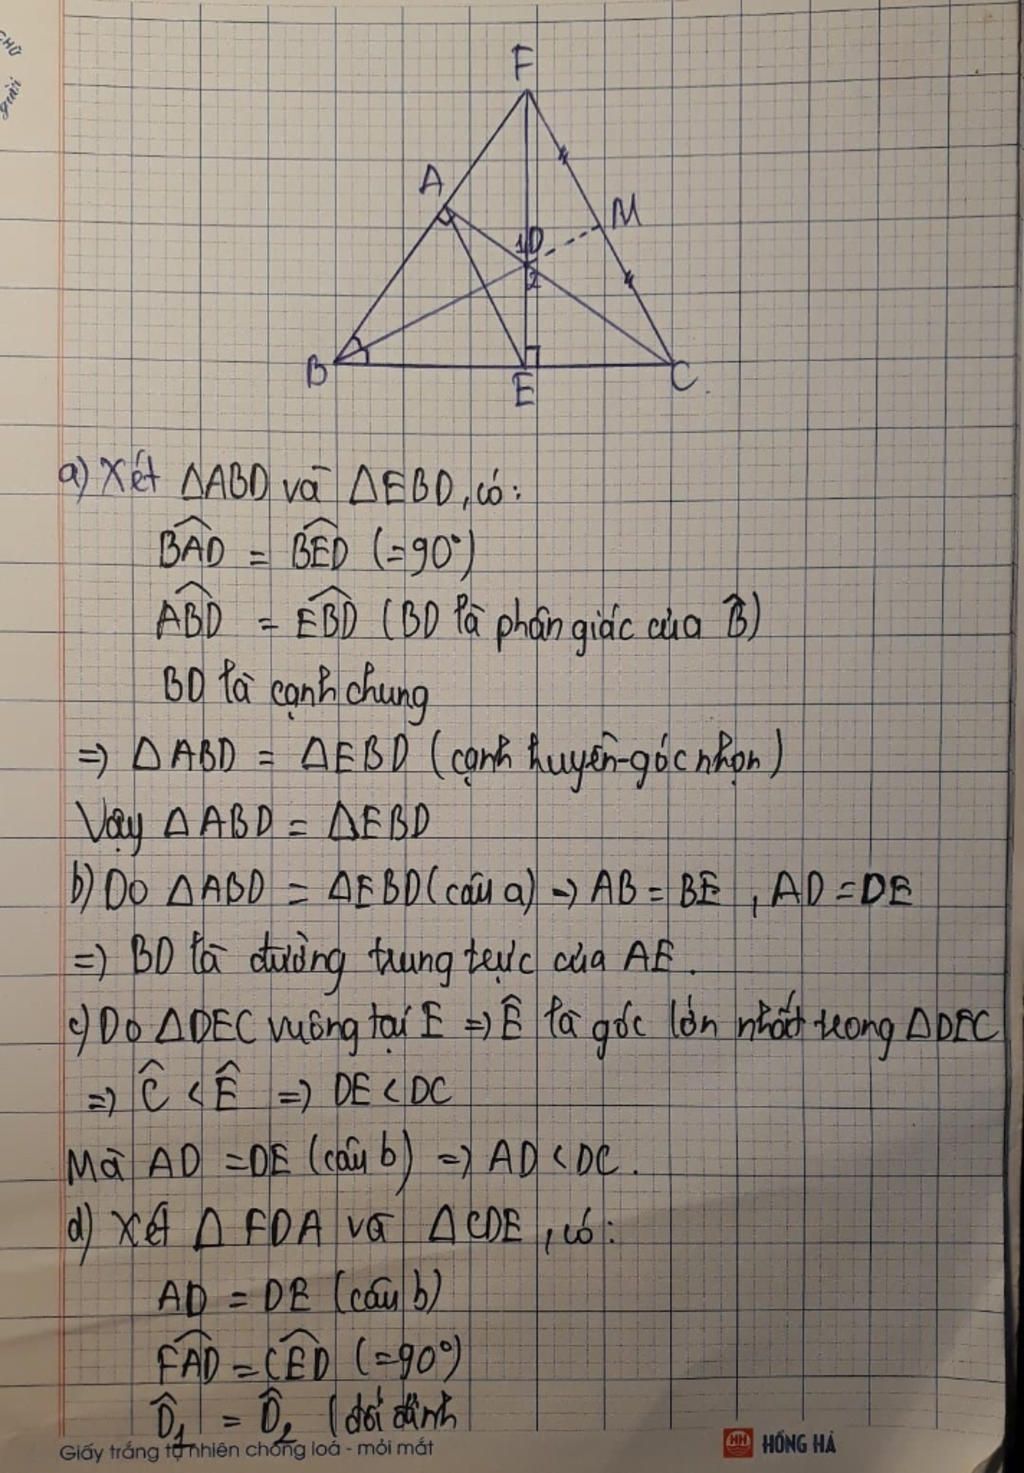 CHỮ
F
A
M
1 D
2
B
E
C
a) Xét ΔABD và ΔEBD, có:
BAD^ = BED^ (=90°)
ABD^ = EBD^ (BD là phân giác của B^)
BD là cạnh chung
=> ΔABD = ΔEBD (cạnh huyền-góc nhọn)
Vậy ΔABD = ΔEBD
b) Do ΔABD = ΔEBD (câu a) => AB = BE, AD = DE
=> BD là đường trung trực của AE.
c) Do ΔDEC vuông tại E => E^ là góc lớn nhất trong ΔDEC
=> C^ < E^ => DE < DC
Mà AD = DE (câu b) => AD < DC.
d) Xét ΔFDA và ΔCDE, có:
AD = DE (câu b)
FAD^ = CED^ (=90°)
D^1 = D^2 (đối đỉnh
Giấy trắng tự nhiên chống loá - mỏi mắt
HH HỒNG HÀ